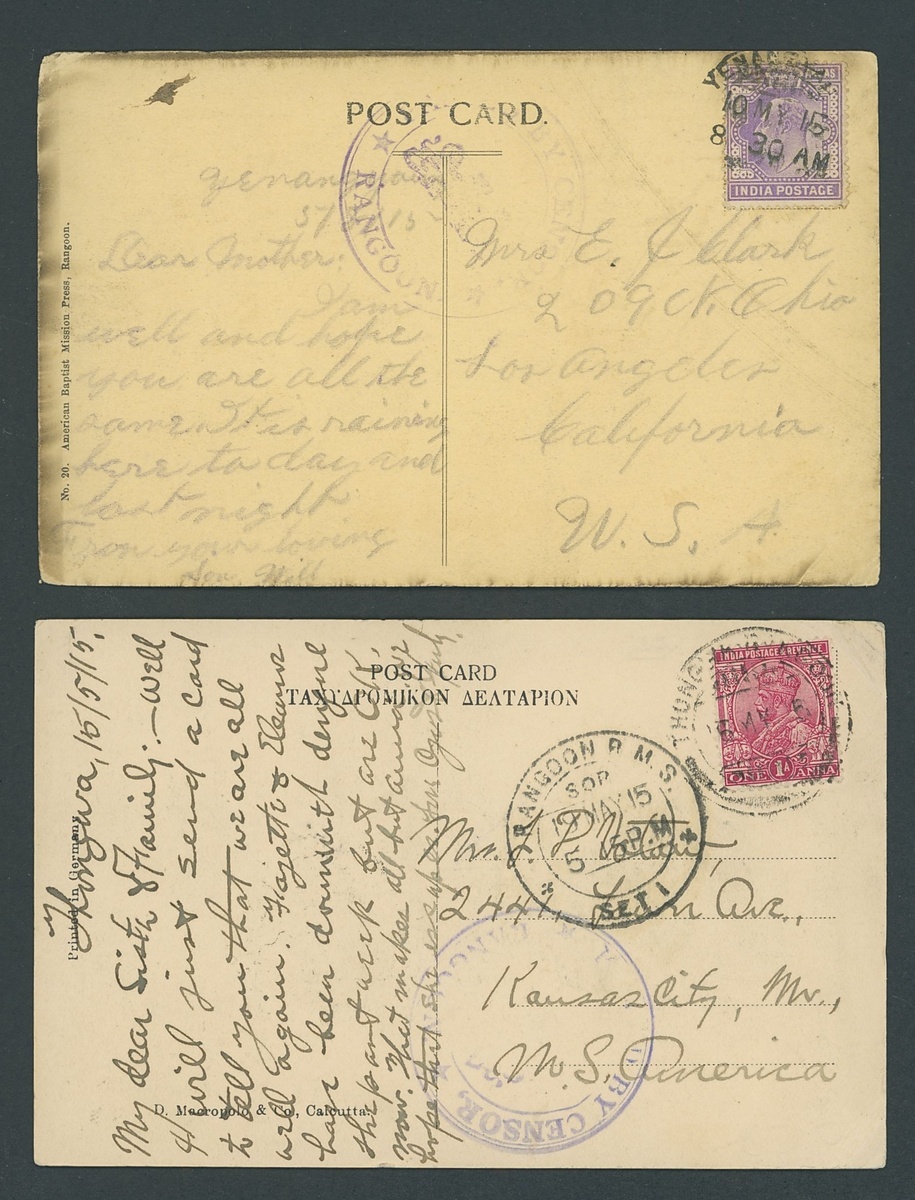 POST CARD.
YENAN
10 MY 15
8 30 AM
INDIA POSTAGE
BY CENSOR
RANGO
Yenang
5/ 15
Dear Mother.
I am
well and hope
you are all the
same. It is raining
here to day and
last night
From your loving
Son. Will
Mrs E. J Clark
209 N. Ohio
Los Angeles
California
U. S. A.
No. 20. American Baptist Mission Press, Rangoon.
POST CARD
ΤΑΧΥΔΡΟΜΙΚΟΝ ΔΕΛΤΑΡΙΟΝ
Thongwa, 15/5/15.
My dear Sister & Family:- Well
I will just send a card
to tell you that we are all
well again. &
have been down with dengue
the past week but are O.K.
now. That makes all but
hope that she escapes
INDIA POSTAGE & REVENUE
ONE 1A ANNA
THONG
RANGOON R.M.S.
SOR
19 MAY 15
5 P.M
SET 1
Mr. L. P.
2441, Ave.,
Kansas City, Mo.,
U.S. America
BY CENSOR,
RANGO
Printed in Germany
D. Macropolo & Co, Calcutta.